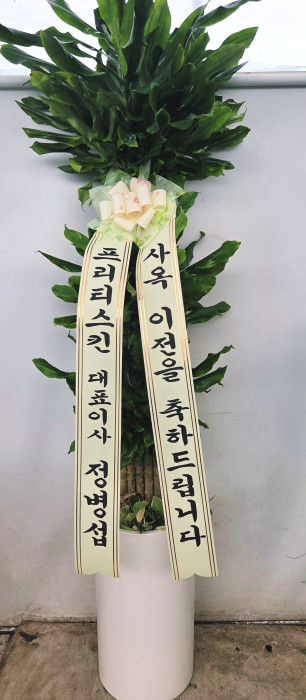 프리티스킨 대표이사 정병섭
사옥 이전을 축하드립니다